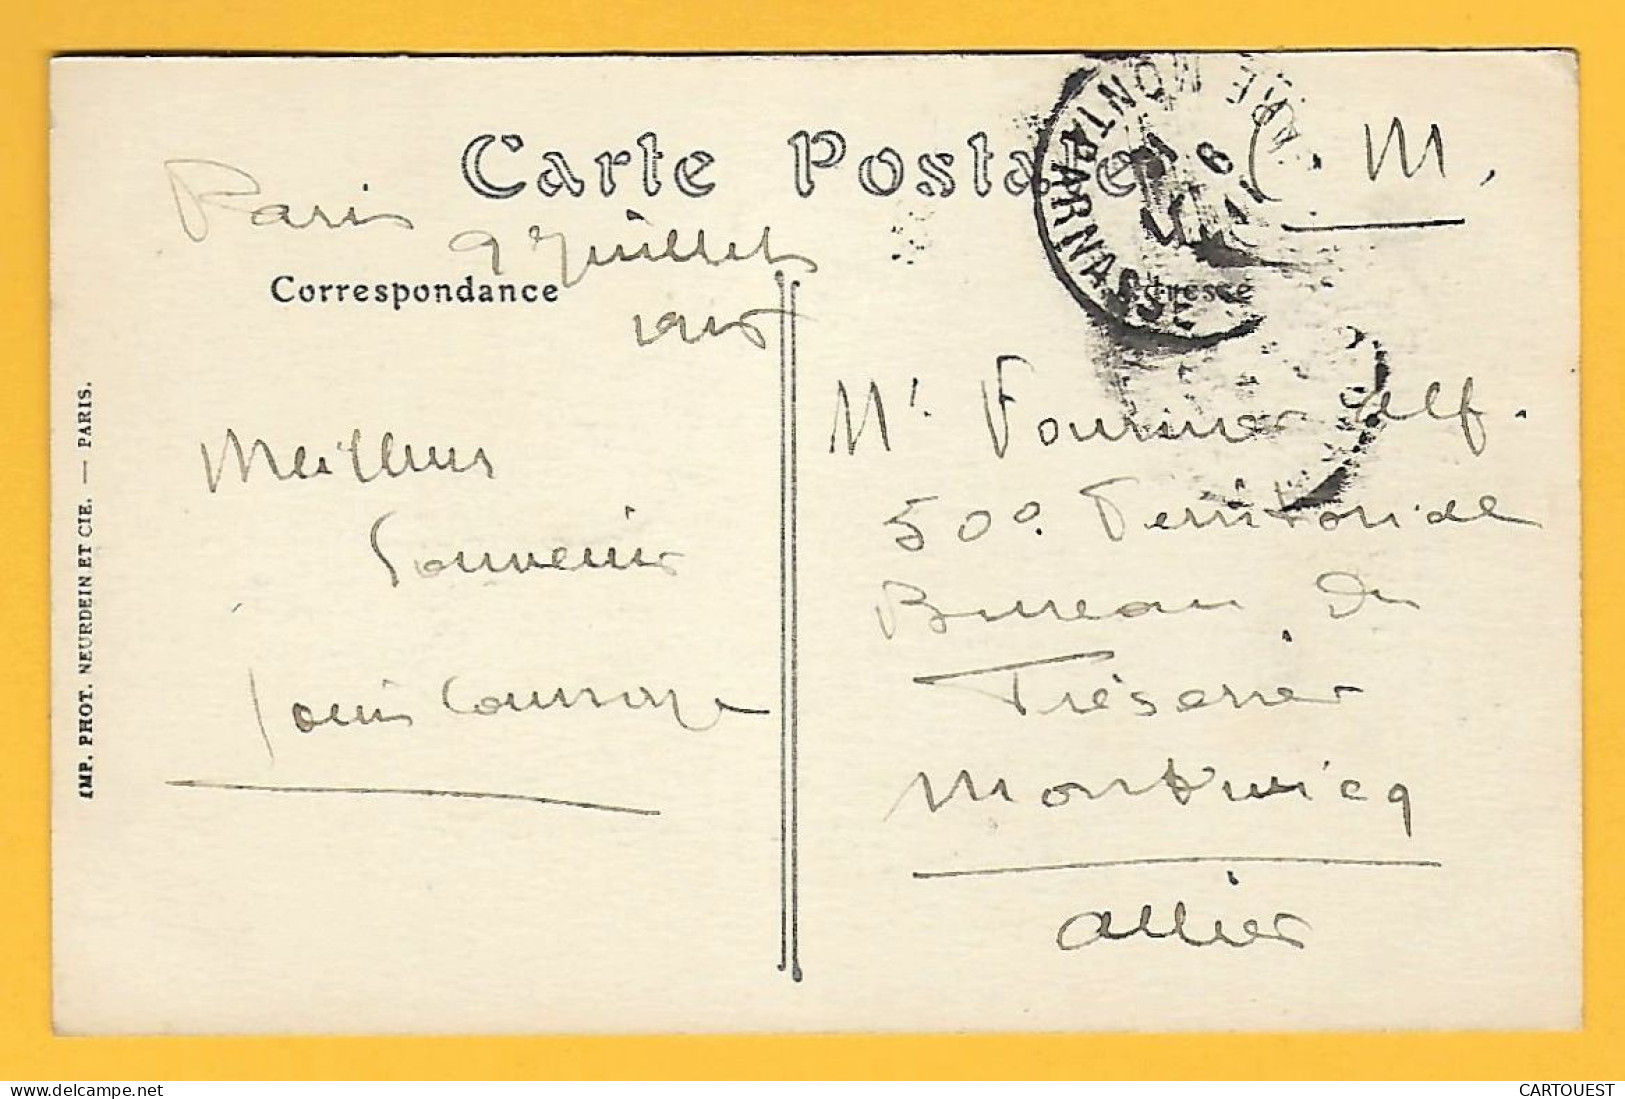 Carte Postale
GARE MONTPARNASSE
F. M.
Paris
9 Juillet
1915
Correspondance
Adresse
Meilleurs
Souvenirs
Louis
Mr. Fournier Alf.
50e. Territorial
Bureau du
Trésorier
Montluçon
Allier
IMP. PHOT. NEURDEIN ET CIE. — PARIS.
CARTOUEST